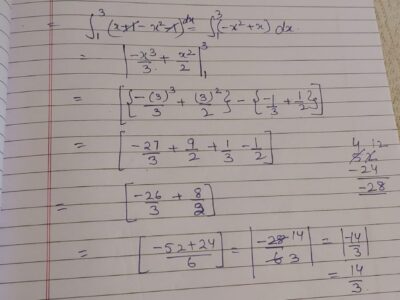 = ∫₁³ (x+1-x²-1) dx = ∫₁³ (-x²+x) dx
= | -x³/3 + x²/2 |₁³
= [{ -(3)³/3 + (3)²/2 } - { -1/3 + 1/2 }]
= [ -27/3 + 9/2 + 1/3 - 1/2 ]
= [ -26/3 + 8/2 ]
= [ (-52+24)/6 ] = | -28/6 14/3 | = | -14/3 |
= 14/3
4 12
5 2
-24
-28